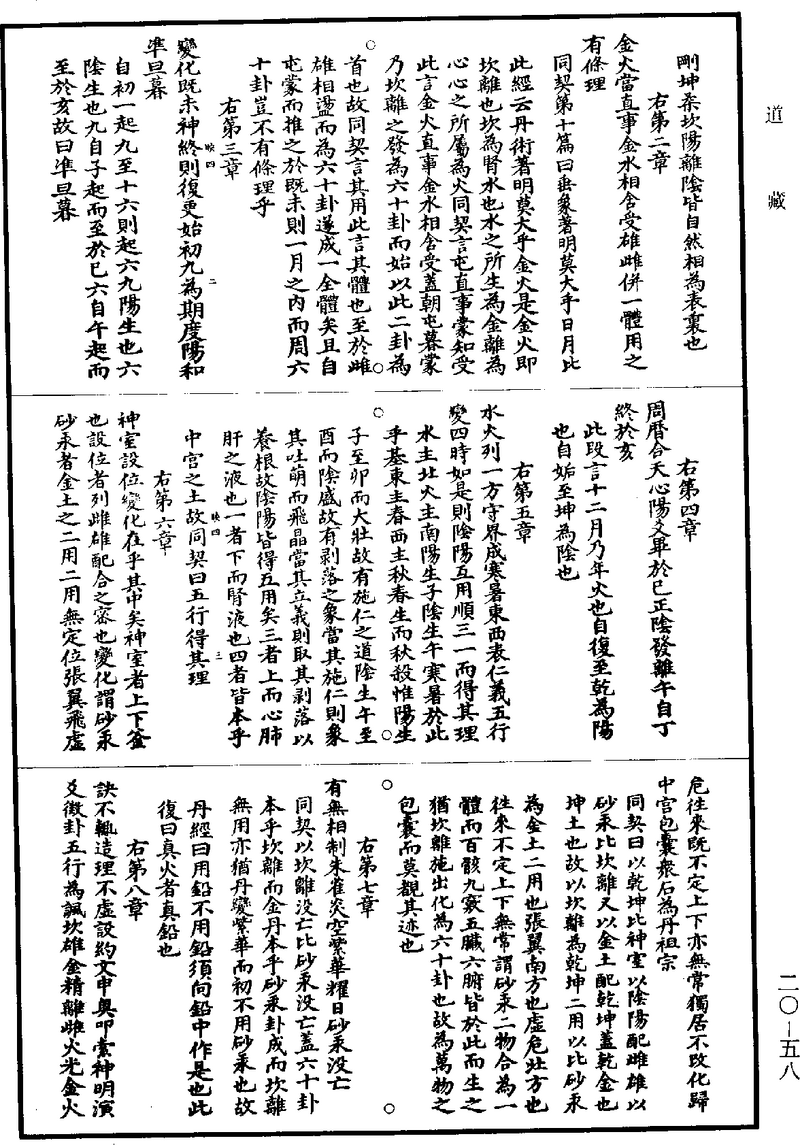 道藏
剛坤柔坎陽離陰皆自然相為表裏也
右第二章
金火當直事金水相含受雄雌併一體用之
有條理
同契第十篇曰垂象著明莫大乎日月比
此經云丹術著明莫大乎金火是金火即
坎離也坎為腎水也水之所生為金離為
心心之所屬為火同契言屯直事蒙知受
此言金火直事金水相含受蓋朝屯暮蒙
乃坎離之發為六十卦而始以此二卦為
首也故同契言其用此言其體也至於雌
雄相盪而為六十卦遂成一全體矣且自
屯蒙而推之於既未則一月之內而周六
十卦豈不有條理乎
右第三章
變化既未神終則復更始初九為期度陽和
準旦暮
自初一起九至十六則起六九陽生也六
陰生也九自子起而至於巳六自午起而
至於亥故曰準旦暮
映四
二
右第四章
周曆合天心陽爻畢於巳正陰發離午自丁
終於亥
此段言十二月乃年火也自復至乾為陽
也自姤至坤為陰也
右第五章
水火列一方守界成寒暑東西表仁義五行
變四時如是則陰陽互用順三一而得其理
水主北火主南陽生子陰生午寒暑於此
乎基東主春西主秋春生而秋殺惟陽生
子至卯而大壯故有施仁之道陰生午至
酉而陰盛故有剥落之象當其施仁則象
其吐萌而飛晶當其立義則取其剥落以
養根故陰陽皆得五用矣三者上而心肺
肝之液也一者下而腎液也四者皆本乎
中宮之土故同契曰五行得其理
映四
三
右第六章
神室設位變化在乎其中矣神室者上下釜
也設位者列雌雄配合之密也變化謂砂汞
砂汞者金土之二用二用無定位張翼飛虛
危往來既不定上下亦無常獨居不改化歸
中宮包囊衆石為丹祖宗
同契曰以乾坤比神室以陰陽配雌雄以
砂汞比坎離又以金土配乾坤蓋乾金也
坤土也故以坎離為乾坤二用以比砂汞
為金土二用也張翼南方也虛危北方也
往來不定上下無常謂砂汞二物合為一
體而百骸九竅五臟六腑皆於此而生之
猶坎離施出化為六十卦也故為萬物之
包囊而莫觀其迹也
右第七章
有無相制朱雀炎空紫華耀日砂汞没亡
同契以坎離没亡比砂汞没亡蓋六十卦
本乎坎離而金丹本乎砂汞卦成而坎離
無用亦猶丹變紫華而初不用砂汞也故
丹經曰用鉛不用鉛須向鉛中作是也此
復曰真火者真鉛也
右第八章
訣不輒造理不虛設約文申奧叩索神明演
爻徵卦五行為諷坎雄金精離雌火光金火
二〇—五八